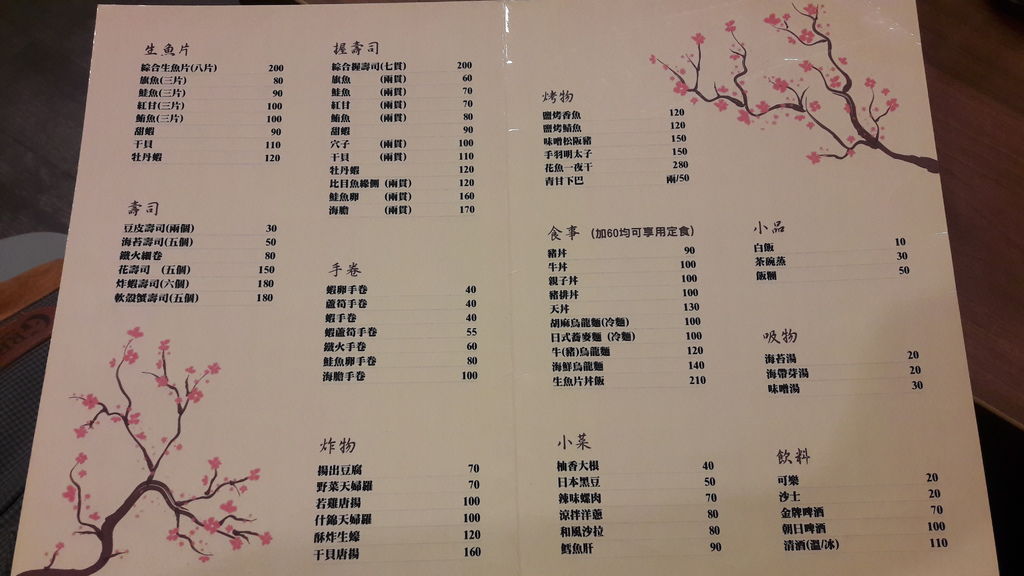 生魚片
綜合生魚片(八片) 200
旗魚(三片) 80
鮭魚(三片) 90
紅甘(三片) 100
鮪魚(三片) 100
甜蝦 90
干貝 110
牡丹蝦 120
壽司
豆皮壽司(兩個) 30
海苔壽司(五個) 50
鐵火細卷 80
花壽司 (五個) 150
炸蝦壽司(六個) 180
軟殼蟹壽司(五個) 180
握壽司
綜合握壽司(七貫) 200
旗魚 (兩貫) 60
鮭魚 (兩貫) 70
紅甘 (兩貫) 70
鮪魚 (兩貫) 80
甜蝦 90
穴子 (兩貫) 100
干貝 (兩貫) 110
牡丹蝦 120
比目魚緣側 (兩貫) 120
鮭魚卵 (兩貫) 160
海膽 (兩貫) 170
手卷
蝦卵手卷 40
蘆筍手卷 40
蝦手卷 40
蝦蘆筍手卷 55
鐵火手卷 60
鮭魚卵手卷 80
海膽手卷 100
炸物
揚出豆腐 70
野菜天婦羅 70
若雞唐揚 100
什錦天婦羅 100
酥炸生蠔 120
干貝唐揚 160
烤物
鹽烤香魚 120
鹽烤鯖魚 120
味噌松阪豬 150
手羽明太子 150
花魚一夜干 280
青甘下巴 兩/50
食事 (加60均可享用定食)
豬丼 90
牛丼 100
親子丼 100
豬排丼 100
天丼 130
胡麻烏龍麵(冷麵) 100
日式蕎麥麵 (冷麵) 100
牛(豬)烏龍麵 120
海鮮烏龍麵 140
生魚片丼飯 210
小菜
柚香大根 40
日本黑豆 50
辣味螺肉 70
涼拌洋蔥 80
和風沙拉 80
鱈魚肝 90
小品
白飯 10
茶碗蒸 30
飯糰 50
吸物
海苔湯 20
海帶芽湯 20
味噌湯 30
飲料
可樂 20
沙士 20
金牌啤酒 70
朝日啤酒 100
清酒(溫/冰) 110